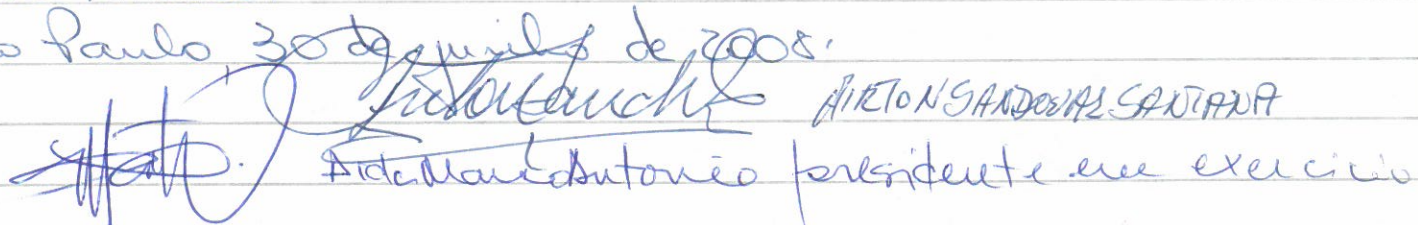 o Paulo, 30 de junho de 2008.
AIRTON SANDOVAL SANTANA
Aida Marco Antonio presidente em exercício